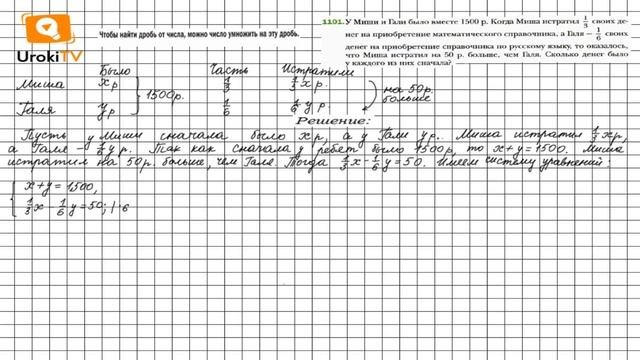 UrokiTV
Чтобы найти дробь от числа, можно число умножить на эту дробь.
1101. У Миши и Гали было вместе 1500 р. Когда Миша истратил 1/3 своих де-
нег на приобретение математического справочника, а Галя – 1/6 своих
денег на приобретение справочника по русскому языку, то оказалось,
что Миша истратил на 50 р. больше, чем Галя. Сколько денег было
у каждого из них сначала?
Было Часть Истратили
Миша x р 1/3 1/3 x р.
1500р. на 50р. больше
Галя y р 1/6 1/6 y р.
Решение:
Пусть у Миши сначала было x р, а у Гали y р. Миша истратил 1/3 x р,
а Галя – 1/6 y р. Так как сначала у ребят было 1500р, то x + y = 1500. Миша
истратил на 50 р. больше, чем Галя. Тогда 1/3 x - 1/6 y = 50. Имеем систему уравнений:
x + y = 1500,
1/3 x - 1/6 y = 50; | · 6